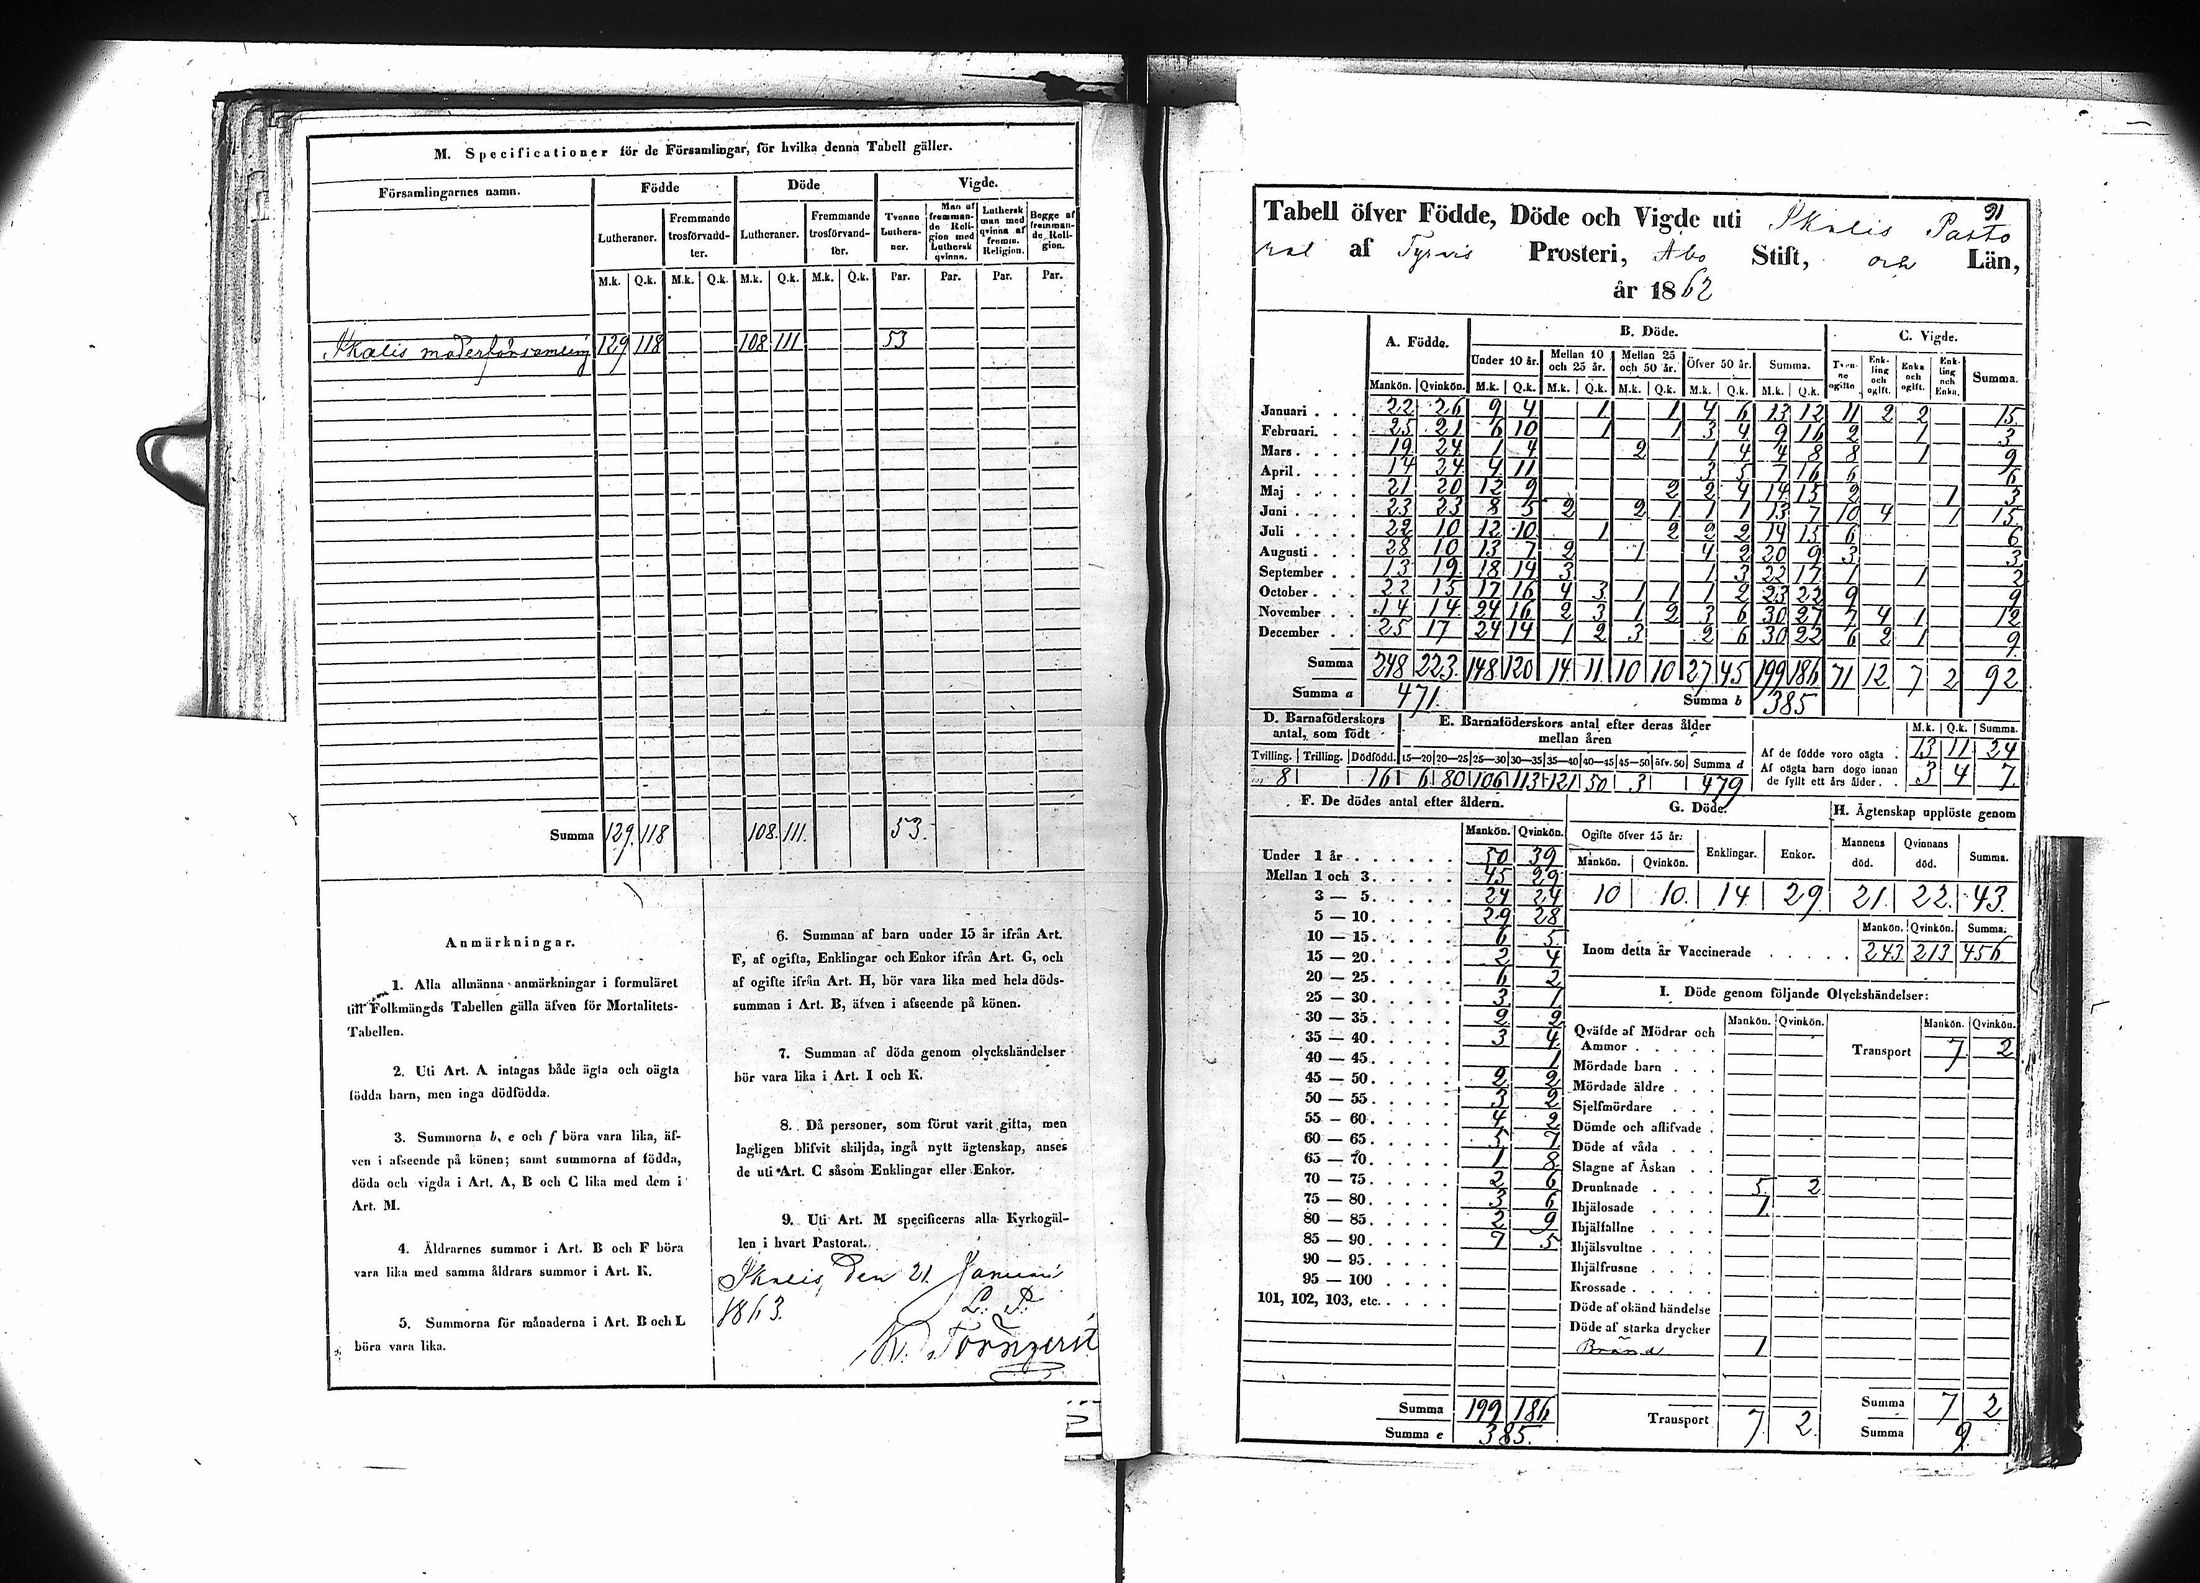 M. Specificationer för de Församlingar, för hvilka denna Tabell gäller.
Församlingarnes namn. Födde Döde Vigde.
Lutheraner. Fremmande trosförvandter. Lutheraner. Fremmande trosförvandter. Tvenne Lutheraner. Man af fremmande Religion med Luthersk qvinna. Luthersk man med qvinna af fremm. Religion. Begge af fremmande Religion.
M.k. Q.k. M.k. Q.k. M.k. Q.k. M.k. Q.k. Par. Par. Par. Par.
Ikalis moderförsamling 129 118 108 111 53
Summa 129. 118 108. 111. 53.
Anmärkningar.
1. Alla allmänna anmärkningar i formuläret
till Folkmängds Tabellen gälla äfven för Mortalitets-
Tabellen.
2. Uti Art. A intagas både ägta och oägta
födda barn, men inga dödfödda.
3. Summorna b, e och f böra vara lika, äf-
ven i afseende på könen; samt summorna af födda,
döda och vigda i Art. A, B och C lika med dem i
Art. M.
4. Åldrarnes summor i Art. B och F böra
vara lika med samma åldrars summor i Art. K.
5. Summorna för månaderna i Art. B och L
böra vara lika.
6. Summan af barn under 15 år ifrån Art.
F, af ogifta, Enklingar och Enkor ifrån Art. G, och
af ogifte ifrån Art. H, bör vara lika med hela döds-
summan i Art. B, äfven i afseende på könen.
7. Summan af döda genom olyckshändelser
bör vara lika i Art. I och K.
8. Då personer, som förut varit gifta, men
lagligen blifvit skiljda, ingå nytt ägtenskap, anses
de uti Art. C såsom Enklingar eller Enkor.
9. Uti Art. M specificeras alla Kyrkogäl-
len i hvart Pastorat.
Ikalis, den 21 Januari
1863.
91
Tabell öfver Födde, Döde och Vigde uti Ikalis Pasto
rat af Tyrvis Prosteri, Åbo Stift, och Län,
år 1862
A. Födde. B. Döde. C. Vigde.
Under 10 år. Mellan 10 och 25 år. Mellan 25 och 50 år. Öfver 50 år. Summa. Tvenne ogifte Enkling och ogift. Enka och ogift. Enkling och Enka. Summa.
Mankön. Qvinkön. M.k. Q.k. M.k. Q.k. M.k. Q.k. M.k. Q.k. M.k. Q.k.
Januari 22 26 9 4 1 1 4 6 13 12 11 2 2 15
Februari 25 21 6 10 1 1 3 4 9 16 2 1 3
Mars 19 24 1 4 2 1 4 4 8 8 1 9
April 14 24 4 11 3 5 7 16 6 6
Maj 21 20 12 9 2 2 4 14 15 2 1 3
Juni 23 23 8 5 2 2 1 1 1 13 7 10 4 1 15
Juli 22 10 12 10 1 2 2 2 14 15 6 6
Augusti 28 10 13 7 2 1 4 2 20 9 3 3
September 13 19 18 14 3 1 3 22 17 1 1 2
October 22 15 17 16 4 3 1 1 1 2 23 22 9 9
November 14 14 24 16 2 3 1 2 3 6 30 27 7 4 1 12
December 25 17 24 14 1 2 3 2 6 30 22 6 2 1 9
Summa 248 223. 148 120 14 11 10 10 27 45 199 186 71 12 7 2 92
Summa a 471. Summa b 385
D. Barnaföderskors antal, som födt E. Barnaföderskors antal efter deras ålder mellan åren
Tvilling. Trilling. Dödfödd. 15—20 20—25 25—30 30—35 35—40 40—45 45—50 öfv. 50 Summa d
8 16 6 80 106 113 121 50 3 479
M.k. Q.k. Summa.
Af de födde voro oägta 13 11 24
Af oägta barn dogo innan
de fyllt ett års ålder 3 4 7.
F. De dödes antal efter åldern.
Mankön. Qvinkön.
Under 1 år 50 39
Mellan 1 och 3 45 29
3 — 5 24 24
5 — 10 29 28
10 — 15 6 5
15 — 20 2 4
20 — 25 6 2
25 — 30 3 1
30 — 35 2 2
35 — 40 3 4
40 — 45 1
45 — 50 2 2
50 — 55 3 2
55 — 60 4 2
60 — 65 5 7
65 — 70 1 8
70 — 75 2 6
75 — 80 3 6
80 — 85 2 9
85 — 90 7 5
90 — 95
95 — 100
101, 102, 103, etc.
Summa 199 186
Summa e 385.
G. Döde. H. Ägtenskap upplöste genom
Ogifte öfver 15 år: Enklingar. Enkor. Mannens död. Qvinnans död. Summa.
Mankön. Qvinkön.
10 10. 14 29 21. 22. 43.
Mankön. Qvinkön. Summa.
Inom detta år Vaccinerade 243 213 456
I. Döde genom följande Olyckshändelser:
Mankön. Qvinkön. Mankön. Qvinkön.
Qväfde af Mödrar och
Ammor Transport 7 2
Mördade barn
Mördade äldre
Sjelfmördare
Dömde och aflifvade
Döde af våda
Slagne af Åskan
Drunknade 5 2
Ihjälosade 1
Ihjälfallne
Ihjälsvultne
Ihjälfrusne
Krossade
Döde af okänd händelse
Döde af starka drycker
Bränd 1
Summa 7 2
Transport 7 2. Summa 9.